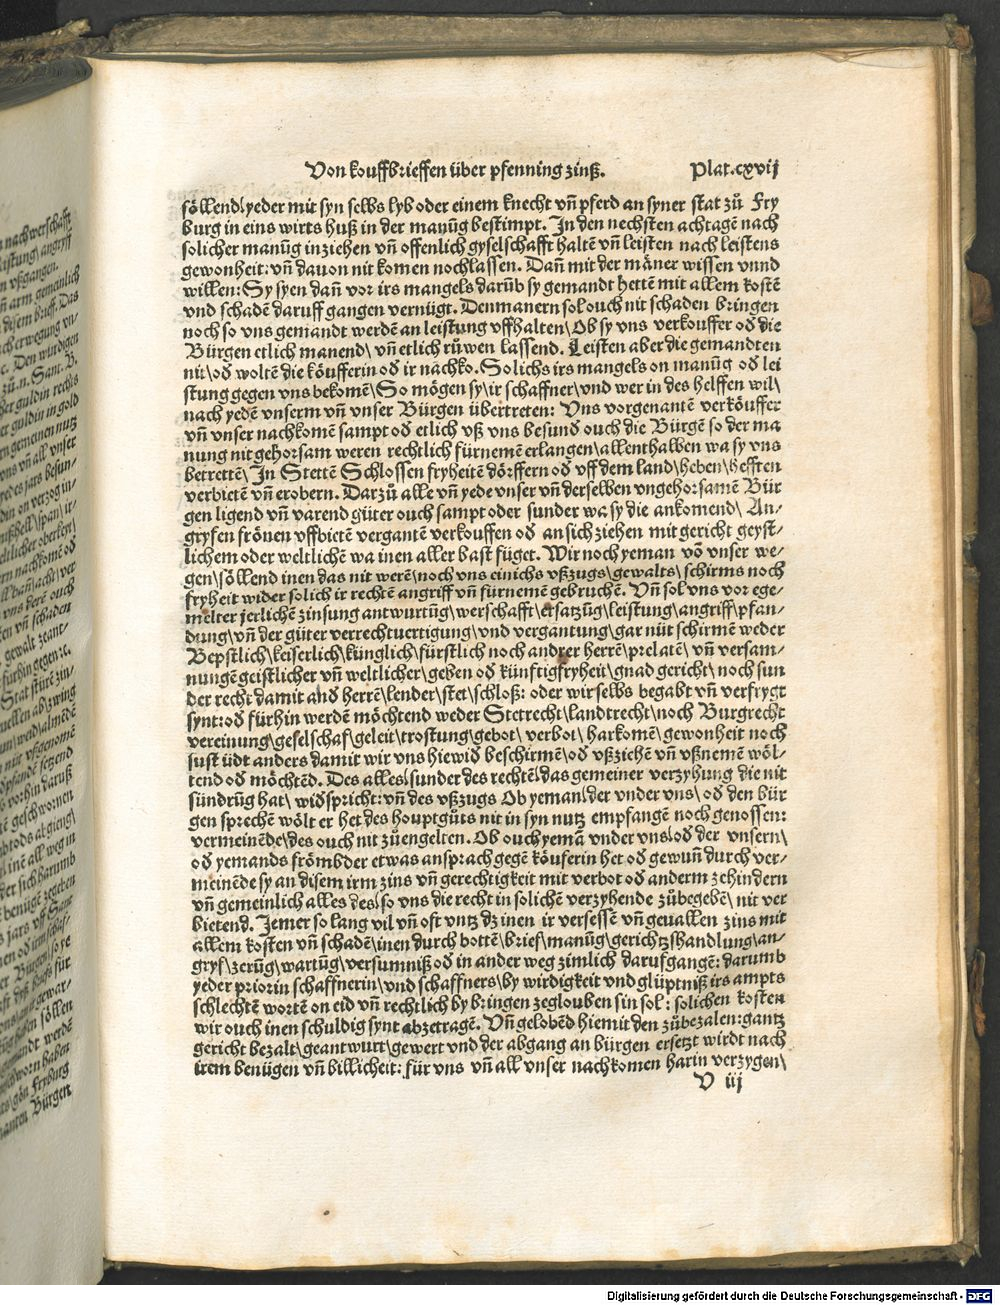 Von kouffbrieffen über pfenning zinß. Plat.cxvij
söllend/yeder mit syn selbs lyb oder einem knecht vñ pferd an syner stat zů Fry
burg in eins wirts huß in der manũg bestimpt. In den nechsten achtagẽ nach
solicher manũg inziehen vñ offenlich gyselschafft haltẽ vñ leisten nach leistens
gewonheit: vñ dauon nit komen nochlassen. Dañ mit der mãner wissen vnnd
willen: Sy syen dañ vor irs mangels darũb sy gemandt hettẽ mit allem kostẽ
vnd schadẽ daruff gangen vernügt. Den manern sol ouch nit schaden bringen
noch so vns gemandt werdẽ an leistung vffhalten\ Ob sy vns verkouffer od die
Bürgen etlich manend\ vñ etlich růwen lassend. Leisten aber die gemandten
nit/od woltẽ die köufferin od ir nachko. Solichs irs mangels on manũg od lei
stung gegen vns bekomẽ\ So mögen sy\ ir schaffner\vnd wer in des helffen wil\
nach yedẽ vnserm vñ vnser Bürgen übertreten: Vns vorgenantẽ verköuffer
vñ vnser nachkomẽ sampt od etlich vß vns besund ouch die Bürgẽ so der ma
nung nit gehorsam weren rechtlich fürnemẽ erlangen\ allenthalben wa sy vns
betrettẽ\ In Stettẽ Schlossen fryheitẽ dörffern od vff dem land\heben\hefften
verbietẽ vñ erobern. Darzů alle vñ yede vnser vñ derselben vngehorsamẽ Bür
gen ligend vñ varend güter ouch sampt oder sunder wa sy die ankomend\ An-
gryfen frönen vffbietẽ vergantẽ verkouffen od an sich ziehen mit gericht geyst-
lichem oder weltlichẽ wa inen aller bast füget. Wir noch yeman võ vnser we-
gen\söllend inen das nit werẽ\noch vns einichs vßzugs\gewalts\ schirms noch
fryheit wider solich ir rechtẽ angriff vñ fürnemẽ gebruchẽ. Vñ sol vns vor ege-
melter jerlichẽ zinsung antwurtũg\werschafft\ersatzũg\leistung\angriff\pfan-
dung\vñ der güter verrechtuertigung\vnd vergantung\gar nüt schirmẽ weder
Bepstlich\keiserlich\künglich\fürstlich noch andrer herrẽ\prelatẽ\ vñ versam-
nungẽ geistlicher vñ weltlicher\geben od künftig fryheit\gnad gericht\ noch sun
der recht damit and herrẽ\lender\stet\schloß: oder wir selbs begabt vñ verfrygt
synt: od fürhin werdẽ möchtend weder Stetrecht\landtrecht\noch Burgrecht
vereinung\geselschaf\geleit\trostung\gebot\ verbot\ harkomẽ\gewonheit noch
sust üdt anders damit wir vns hiewid beschirmẽ\od vßziehẽ vñ vßnemẽ wöl-
tend od möchtẽd. Des alles\sunder des rechtẽ\das gemeiner verzyhung die nit
sündrũg hat\ widspricht: vñ des vßzugs Ob yeman\der vnder vns\ od den bür
gen sprechẽ wölt er het des houptgůts nit in syn nutz empfangẽ noch genossen:
vermeinẽde\des ouch nit zůengelten. Ob ouch yemã vnder vns\od der vnsern\
od yemands frömbder etwas ansprach gegẽ köuferin het od gewuñ durch ver-
meinẽde sy an disem irm zins vñ gerechtigkeit mit verbot od anderm zehindern
vñ gemeinlich alles des\so vns die recht in solichẽ verzyhende zůbegebẽ\ nit ver
bietend. Jemer so lang vil vñ oft vntz dz inen ir versessẽ vñ geuallen zins mit
allem kosten vñ schadẽ\inen durch bottẽ\brief\manũg\gerichtzshandlung\an-
gryf\zerũg\wartũg\versumniß od in ander weg zimlich daruf gangẽ: darumb
yeder priorin schaffnerin\vnd schaffners\by wirdigkeit vnd glüptniß irs ampts
schlechtẽ wortẽ on eid vñ rechtlich by bringen zeglouben sin sol: solichen kosten
wir ouch inen schuldig synt abzetragẽ. Vñ gelobẽd hiemit den zůbezalen: gantz
gericht bezalt\geantwurt\gewert vnd der abgang an bürgen ersetzt wirdt nach
irem benügen vñ billicheit: für vns vñ all vnser nachkomen harin verzygen\
V iij
Digitalisierung gefördert durch die Deutsche Forschungsgemeinschaft - DFG